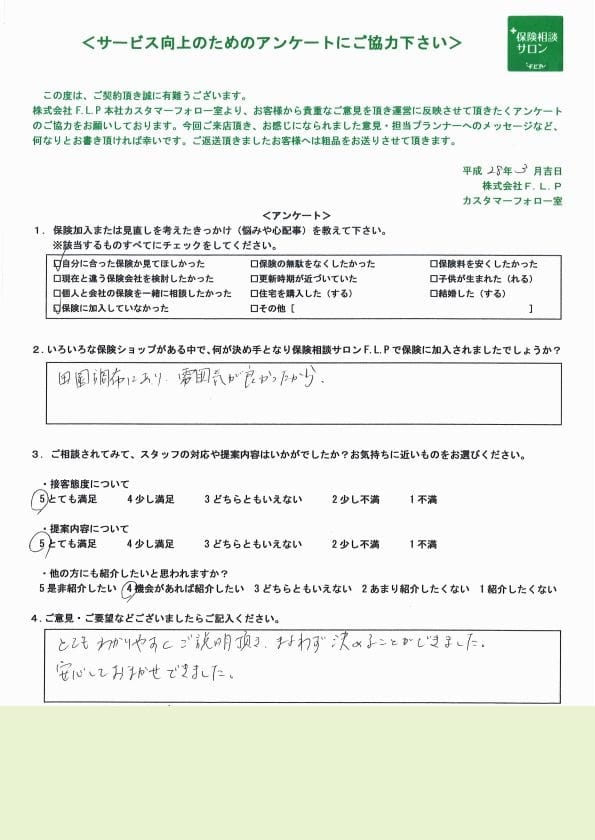 ＜サービス向上のためのアンケートにご協力下さい＞
保険相談
サロン
この度は、ご契約頂き誠に有難うございます。
株式会社F.L.P本社カスタマーフォロー室より、お客様から貴重なご意見を頂き運営に反映させて頂きたくアンケート
のご協力をお願いしております。今回ご来店頂き、お感じになられました意見・担当プランナーへのメッセージなど、
何なりとお書き頂ければ幸いです。ご返送頂きましたお客様へは粗品をお送りさせて頂きます。
平成 28年 3 月吉日
株式会社F.L.P
カスタマーフォロー室
＜アンケート＞
1．保険加入または見直しを考えたきっかけ（悩みや心配事）を教えて下さい。
※該当するものすべてにチェックをしてください。
☑自分に合った保険か見てほしかった □保険の無駄をなくしたかった □保険料を安くしたかった
□現在と違う保険会社を検討したかった □更新時期が近づいていた □子供が生まれた（れる）
□個人と会社の保険を一緒に相談したかった □住宅を購入した（する） □結婚した（する）
☑保険に加入していなかった □その他［ ］
2．いろいろな保険ショップがある中で、何が決め手となり保険相談サロンF.L.Pで保険に加入されましたでしょうか？
田園調布にあり、雰囲気が良かったから。
3．ご相談されてみて、スタッフの対応や提案内容はいかがでしたか？お気持ちに近いものをお選びください。
・接客態度について
5とても満足 4少し満足 3どちらともいえない 2少し不満 1不満
・提案内容について
5とても満足 4少し満足 3どちらともいえない 2少し不満 1不満
・他の方にも紹介したいと思われますか？
5是非紹介したい 4機会があれば紹介したい 3どちらともいえない 2あまり紹介したくない 1紹介したくない
4．ご意見・ご要望などございましたらご記入ください。
とてもわかりやすくご説明頂き、まよわず決めることができました。
安心しておまかせできました。